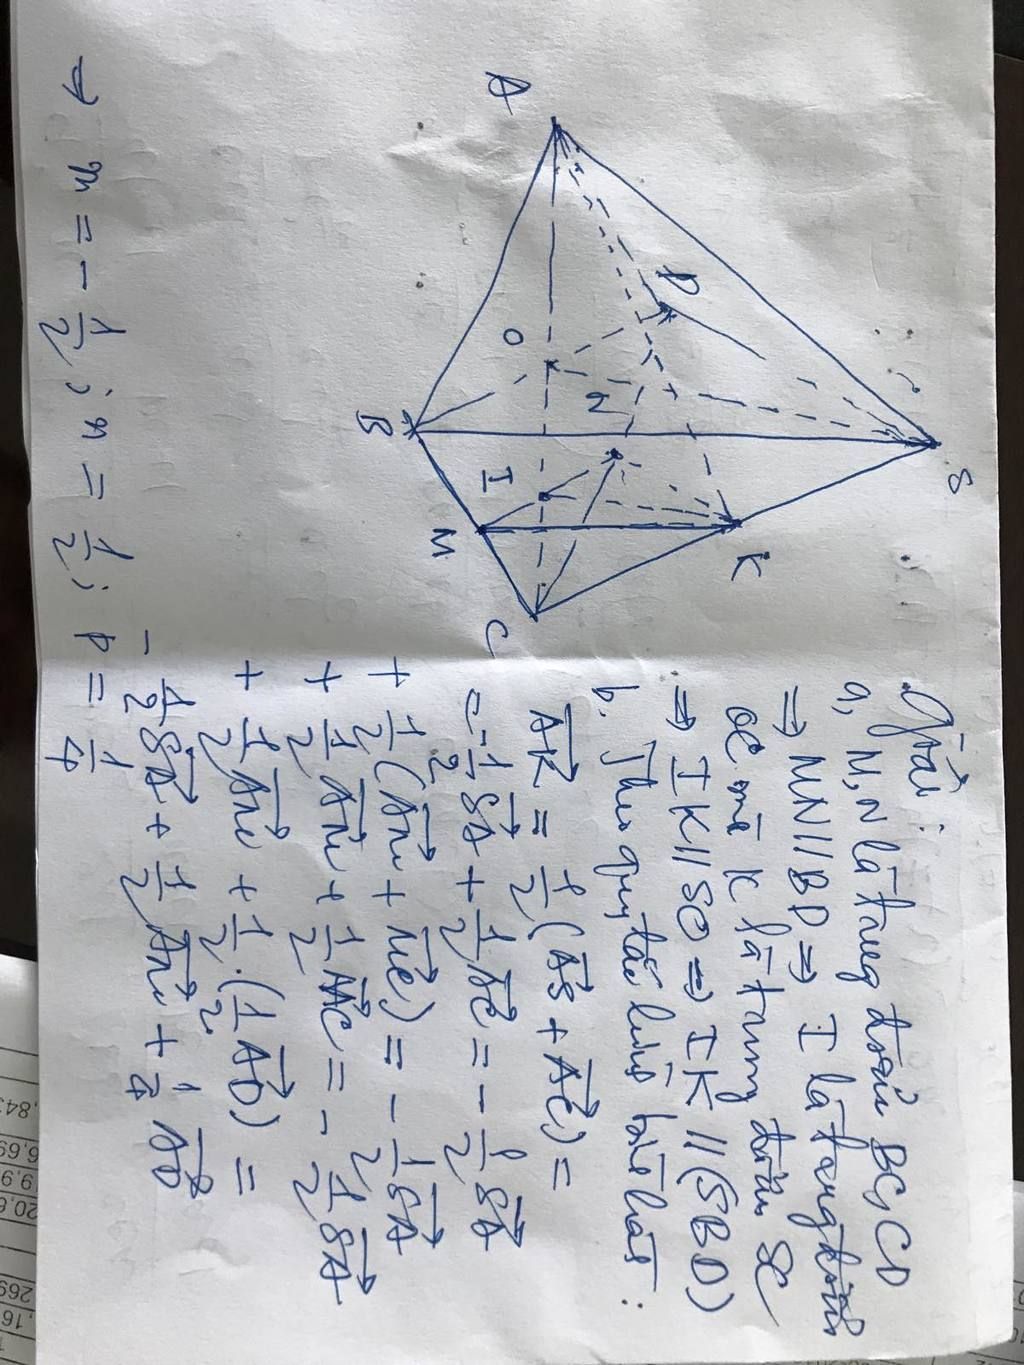 S
A
D
O
N
K
B
I
M
C
Giải:
a, M,N là trung điểm BC, CD
⇒ MN//BD ⇒ I là trung điểm
OC mà K là trung điểm SC
⇒ IK//SO ⇒ IK//(SBD)
b. Theo quy tắc hình bình hành:
AK = 1/2 (AS + AC) =
= -1/2 SA + 1/2 AC = - 1/2 SA
+ 1/2 (AM + MC) = - 1/2 SA
+ 1/2 AM + 1/2 MC = - 1/2 SA
+ 1/2 AM + 1/2 . (1/2 AD) =
- 1/2 SA + 1/2 AM + 1/4 AD
⇒ m = - 1/2 ; n = 1/2 ; p = 1/4